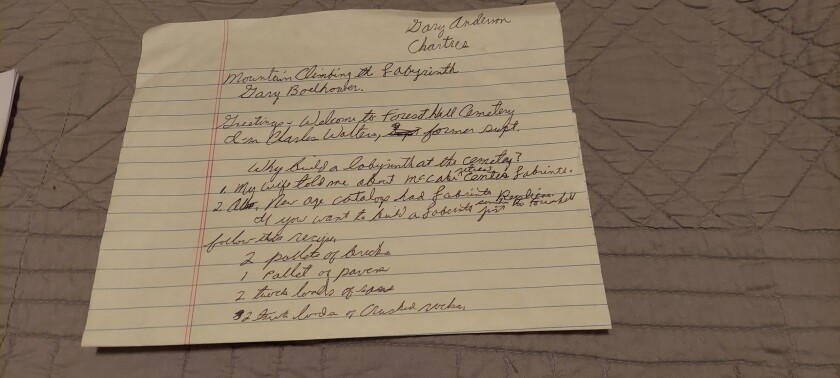 Gary Anderson
Chartres
Mountain Climbing the Labyrinth
Gary Boelhower.
Greetings - Welcome to Forest Hill Cemetery
I'm Charles Walters, former supt.
Why build a labyrinth at the cemetery?
1. My wife told me about McCabe retreat Center Labrints.
2. Also, New age catalogs had Labrints
If you want to build a Labrints just
follow this recipe,
2 pallets of bricks
1 Pallet of pavers
2 truck loads of
2 truck loads of Crushed rocks,